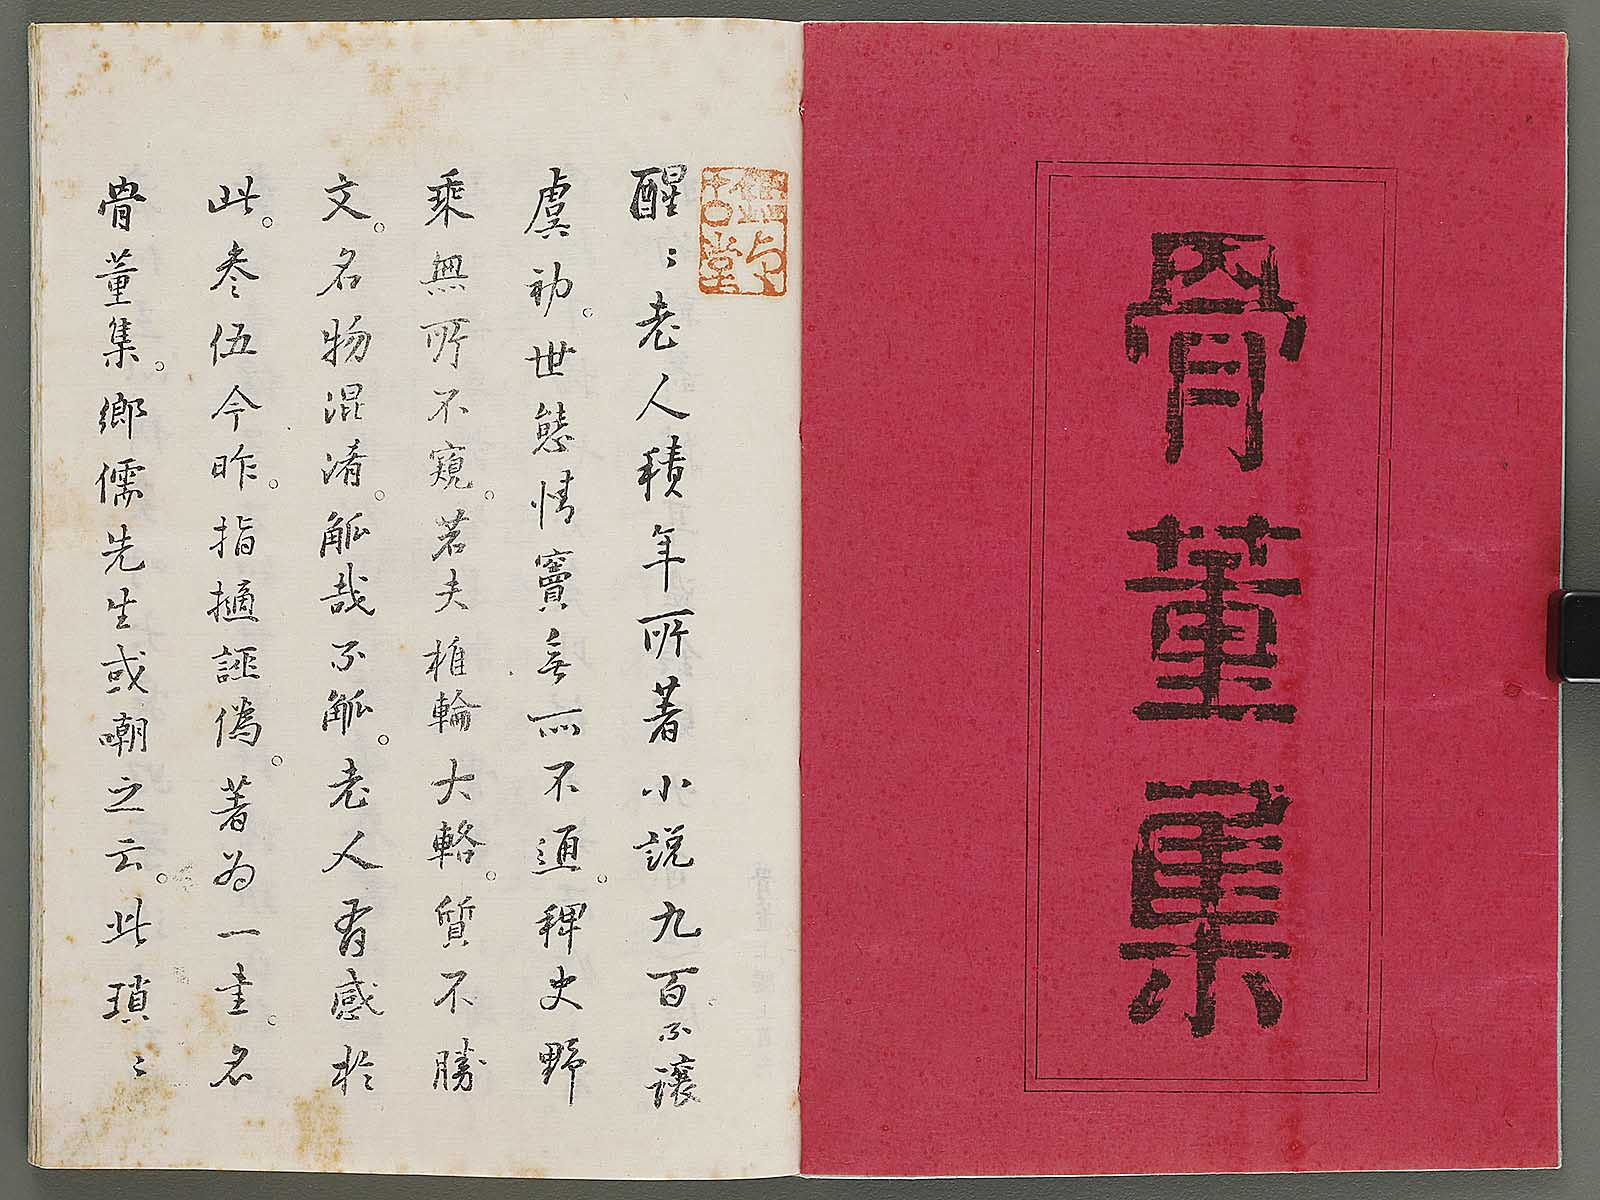 骨董集
醒〻老人積年所著小説九百不譲
虞初。世態情竇無所不通。稗史野
乘無所不窺。若夫椎輪大輅。質不勝
文。名物混淆。觚哉不觚。老人有感於
此。参伍今昨。指擿誣偽。著为一書。名
骨董集。鄉儒先生或嘲之云。此瑣〻